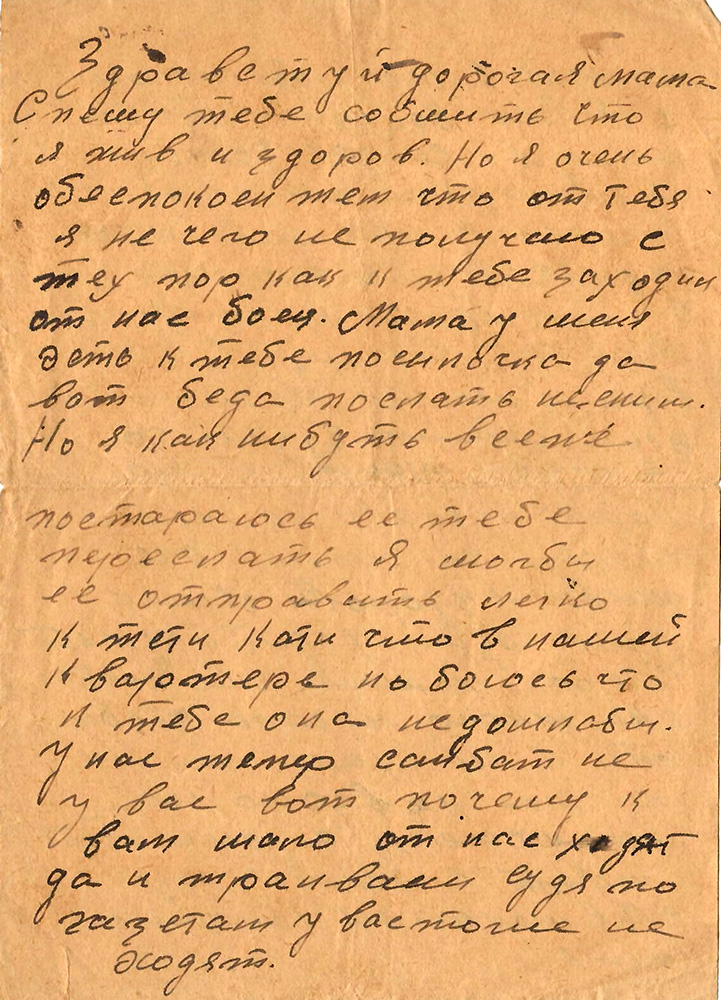 Здравствуй дорогая мама
Спешу тебе собшить что
я жив и здоров. Но я очень
обеспокоен тем что от тебя
я не чего не получаю с
тех пор как к тебе заходил
от нас боец. Мама у меня
эсть к тебе посылочка да
вот беда послать не с ким.
Но я как нибудть всеже
постараюсь ее тебе
переслать я могбы
ее отправить легко
к тети Кати что в нашей
квартере но боюсь что
к тебе она недошлабы.
У нас тепер санбат не
у вас вот почему к
вам мало от нас ходят
да и траиваеи судя по
газетам у вастоже не
ходят.